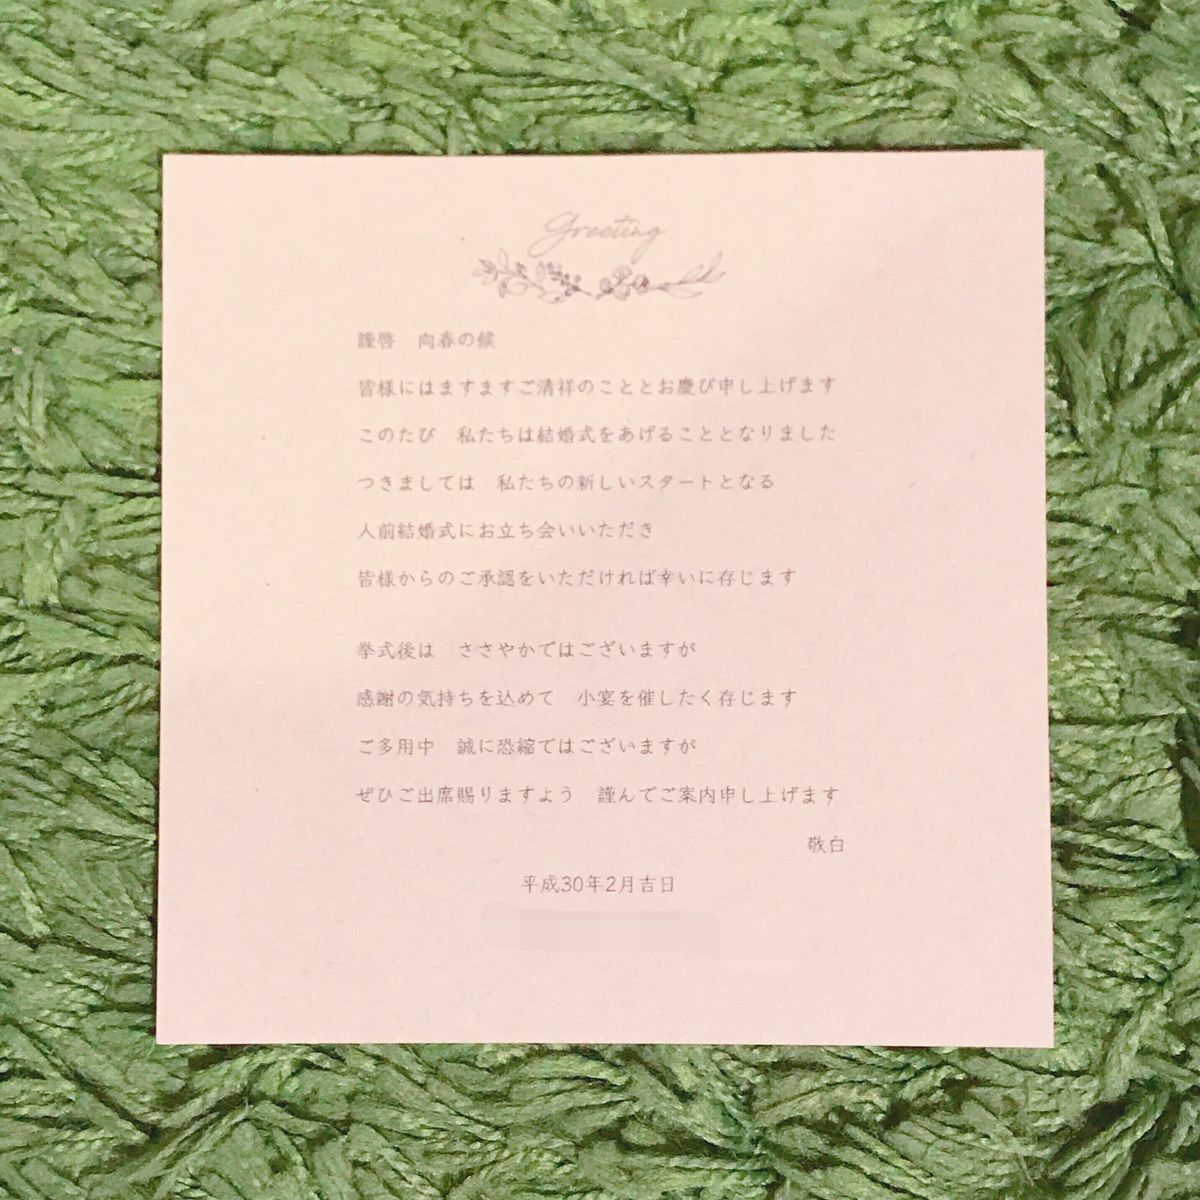 Greeting
謹啓　向春の候
皆様にはますますご清祥のこととお慶び申し上げます
このたび　私たちは結婚式をあげることとなりました
つきましては　私たちの新しいスタートとなる
人前結婚式にお立ち会いいただき
皆様からのご承認をいただければ幸いに存じます
挙式後は　ささやかではございますが
感謝の気持ちを込めて　小宴を催したく存じます
ご多用中　誠に恐縮ではございますが
ぜひご出席賜りますよう　謹んでご案内申し上げます
敬白
平成30年2月吉日